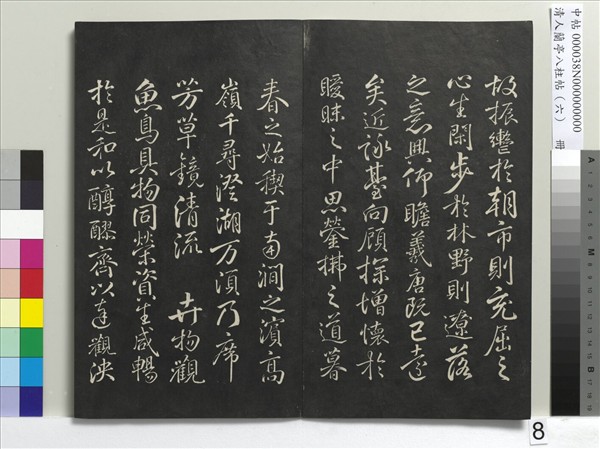 故振轡於朝市則充屈之
心生閑步於林野則遼落
之意興仰瞻羲唐既已遠
矣近詠臺向顧探增懷於
曖昧之中思鎣拂之道暮
春之始禊于南澗之濱高
嶺千尋澄湖万頃乃席
芳草鏡清流 卉物觀
魚鳥具物同榮資生咸暢
於是和以醇醪齊以達觀泱
中帖 000038N000000000
清人蘭亭八柱帖(六) 冊
8